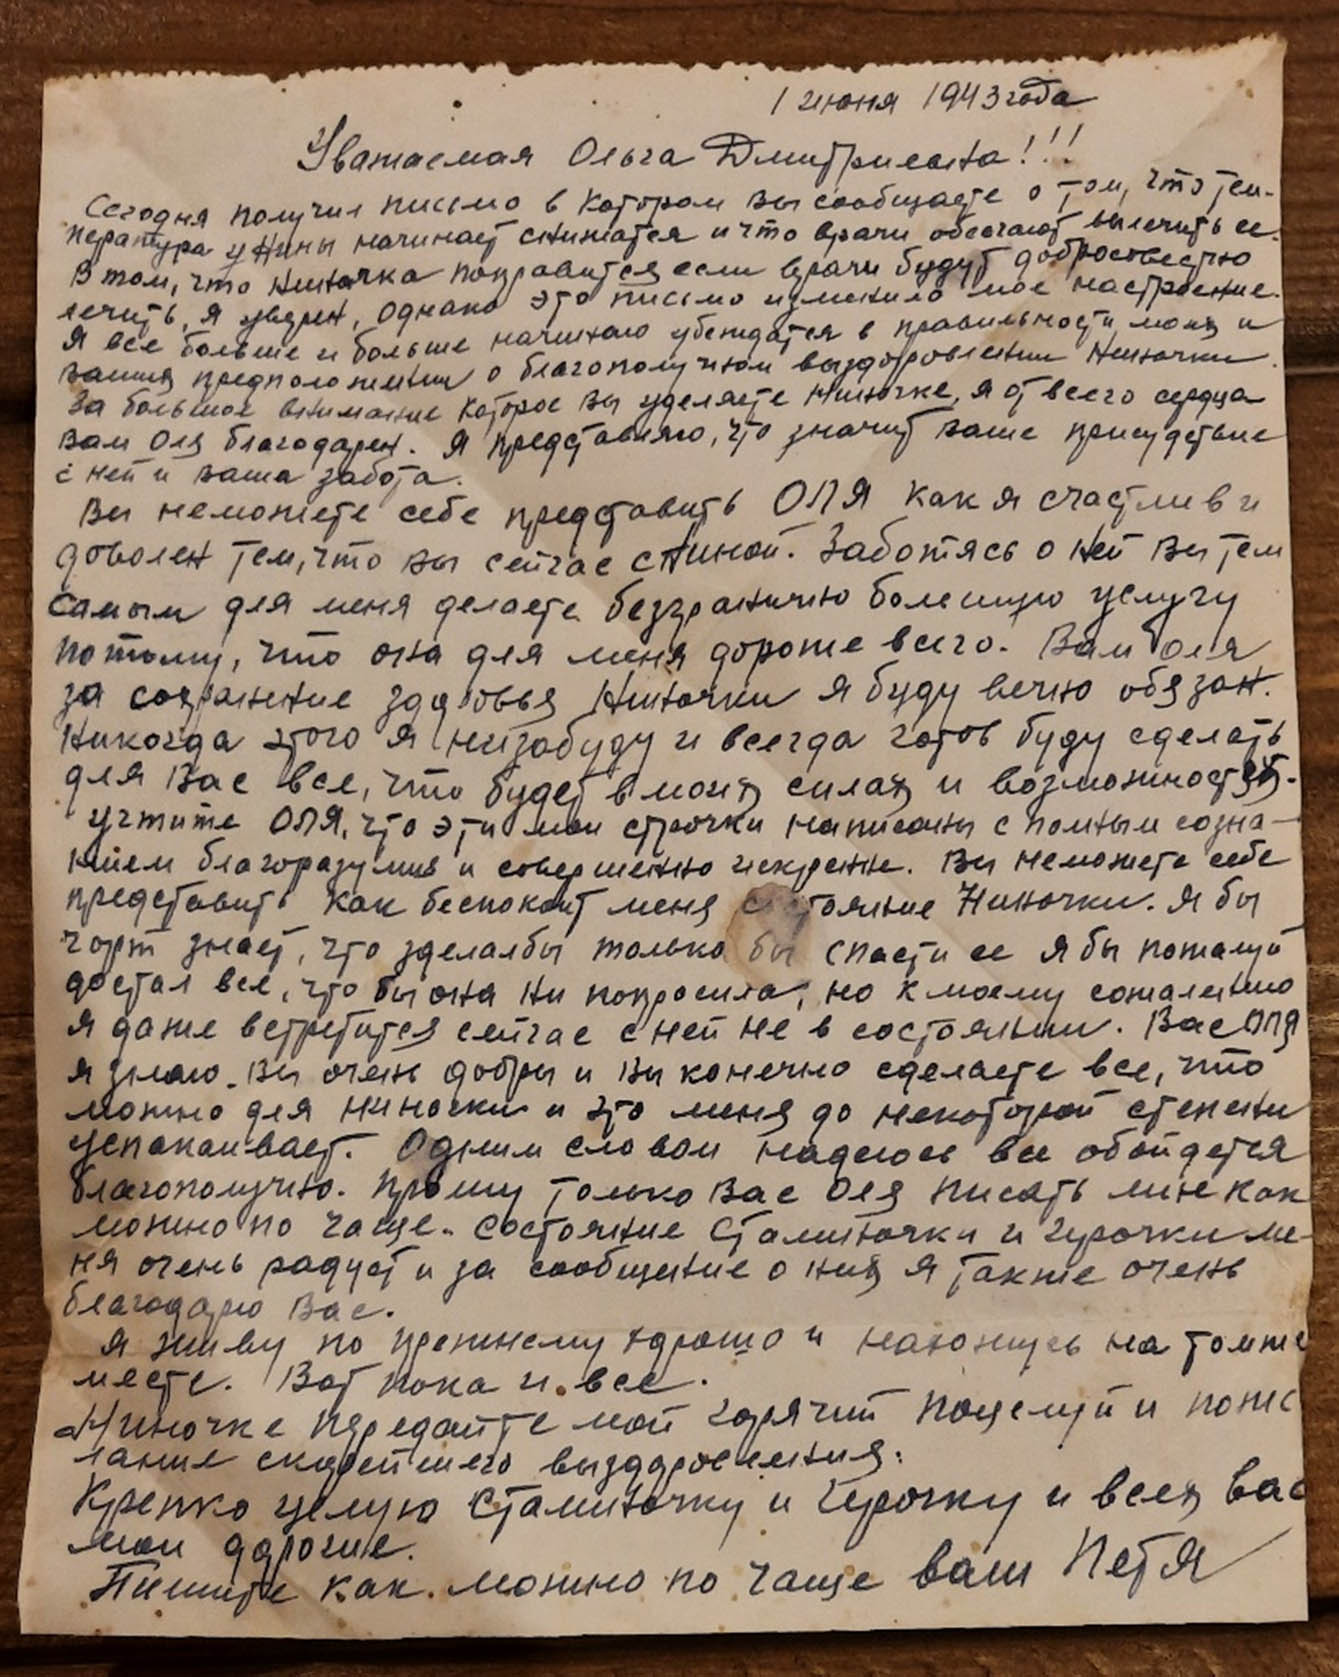 1 июня 1943 года
Уважаемая Ольга Дмитриевна!!!
Сегодня получил письмо в котором вы сообщаете о том, что тем-
пература у Нины начинает снижатся и что врачи обещают вылечить ее.
В том, что Ниночка поправится если врачи будут добросовестно
лечить, я уверен, однако это письмо изменило мое настроение.
Я все больше и больше начинаю убеждатся в правильности моих и
ваших предположении о благополучном выздоровлении Ниночки.
За большое внимание которое вы уделяете Ниночке, я от всего сердца
вам Оля благодарен. Я представляю, что значит ваше присудствие
с ней и ваша забота.
Вы неможете себе представить ОЛЯ как я счастлив и
доволен тем, что вы сейчас с Ниной. Заботясь о ней вы тем
самым для меня делаете безгранично болшую услугу
потому, что она для меня дороже всего. Вам Оля
за сохранение здоровья Ниночки я буду вечно обязан.
Никогда этого я незабуду и всегда готов буду сделать
для Вас все, что будет в моих силах и возможностях.
Учтите ОЛЯ, что эти мои строчки написаны с полным созна-
нием благоразумия и совершенно искренне. Вы неможете себе
представить как беспокоит меня состояние Ниночки. Я бы
чорт знает, что зделалбы только бы спасти ее я бы пожалуй
достал все, что бы она ни попросила, но к моему сожалению
я даже встретится сейчас с ней не в состоянии. Вас ОЛЯ
я знаю. Вы очень добры и вы конечно сделаете все, что
можно для Ниночки и это меня до некоторой степени
успокаивает. Одним словом надеюсь все обойдется
благополучно. Прошу только Вас Оля писать мне как
можно по чаще. Состояние Сталиночки и Ирочки ме-
ня очень радует и за сообщение о них я также очень
благодарю Вас.
Я живу по прежнему хорошо и нахожусь на томже
месте. Вот пока и все.
Ниночке передайте мой горячий поцелуй и поже
лание скорейшего выздоровления.
Крепко целую Сталиночку и Ирочку и всех вас
мои дорогие.
Пишите как можно по чаще ваш Петя